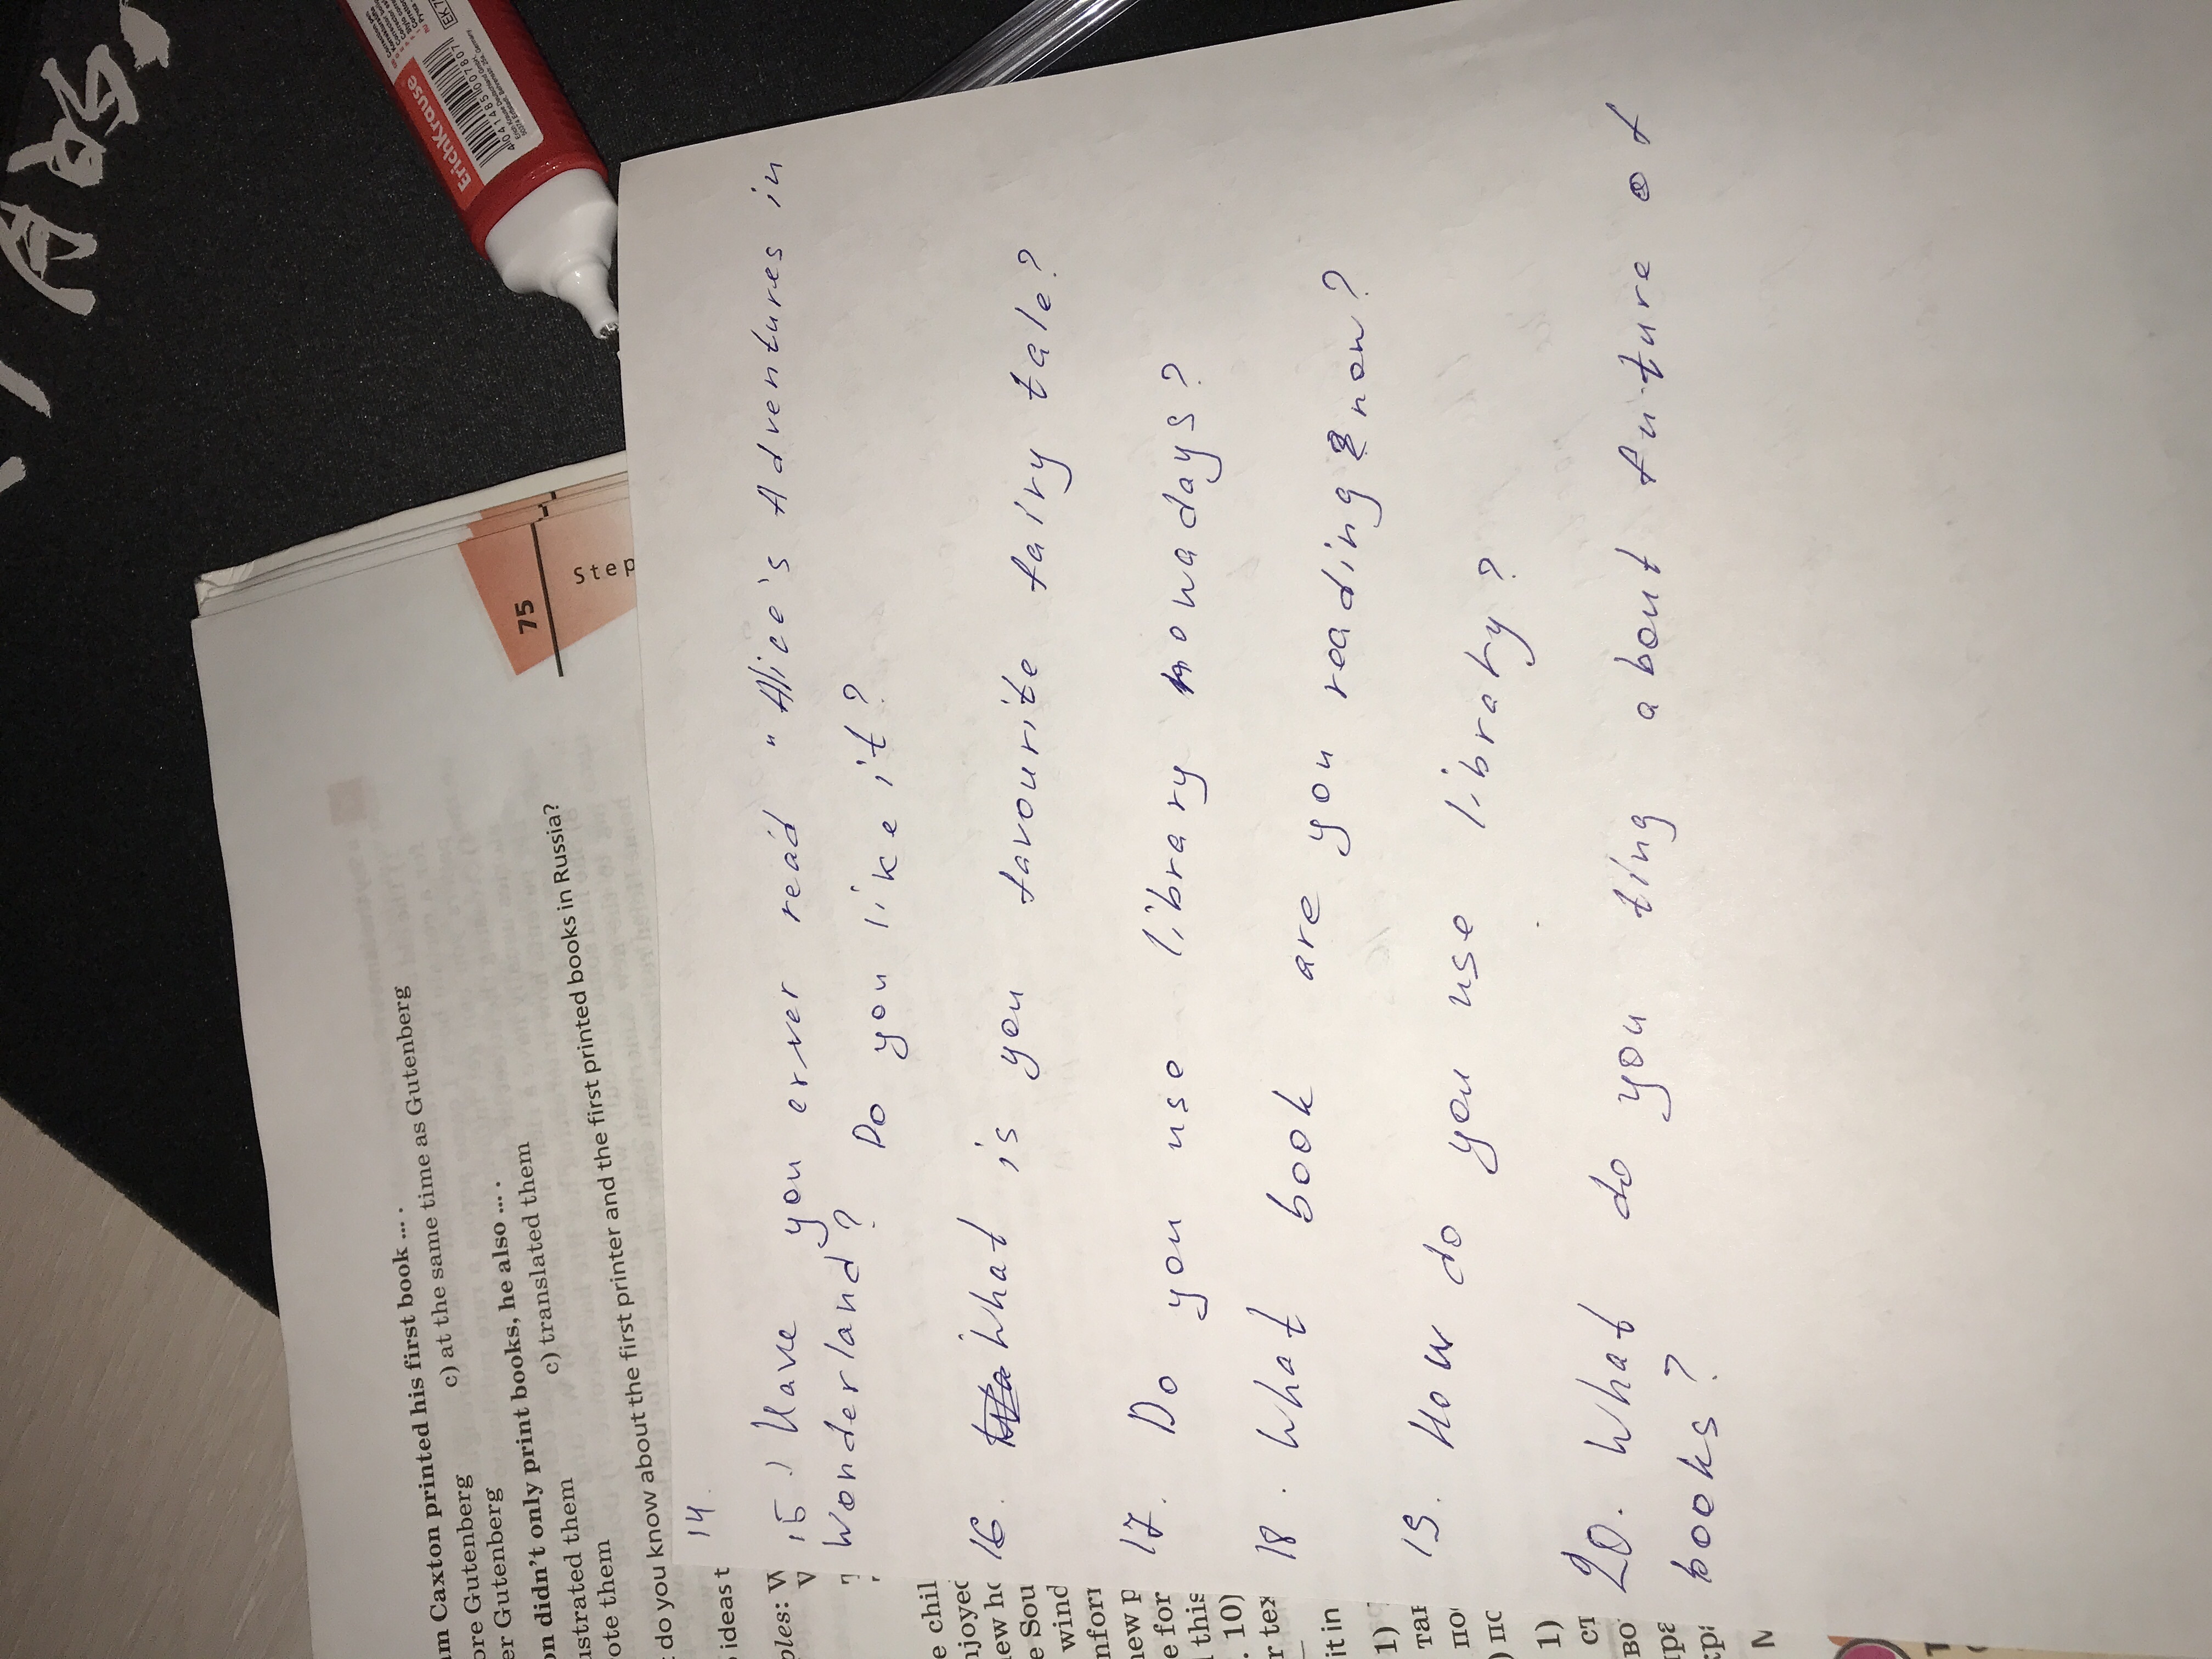 ErichKrause
EK7
4 041485 007807
75
Step
am Caxton printed his first book ... .
ore Gutenberg
c) at the same time as Gutenberg
er Gutenberg
on didn't only print books, he also ... .
ustrated them
c) translated them
ote them
do you know about the first printer and the first printed books in Russia?
ideas t
ples: W
14.
15.) Have you erver read "Alice's Adventures in
Wonderland? Do you like it?
16. What is you favourite fairy tale?
17. Do you use library nowadays?
18. What book are you reading now?
19. How do you use library?
20. What do you ting about future of
books?
e chil
njoyed
new ho
e Sou
wind
nforn
new p
e for
l this
. 10)
r tex
it in
1)
таг
по
) по
1)
ст
во